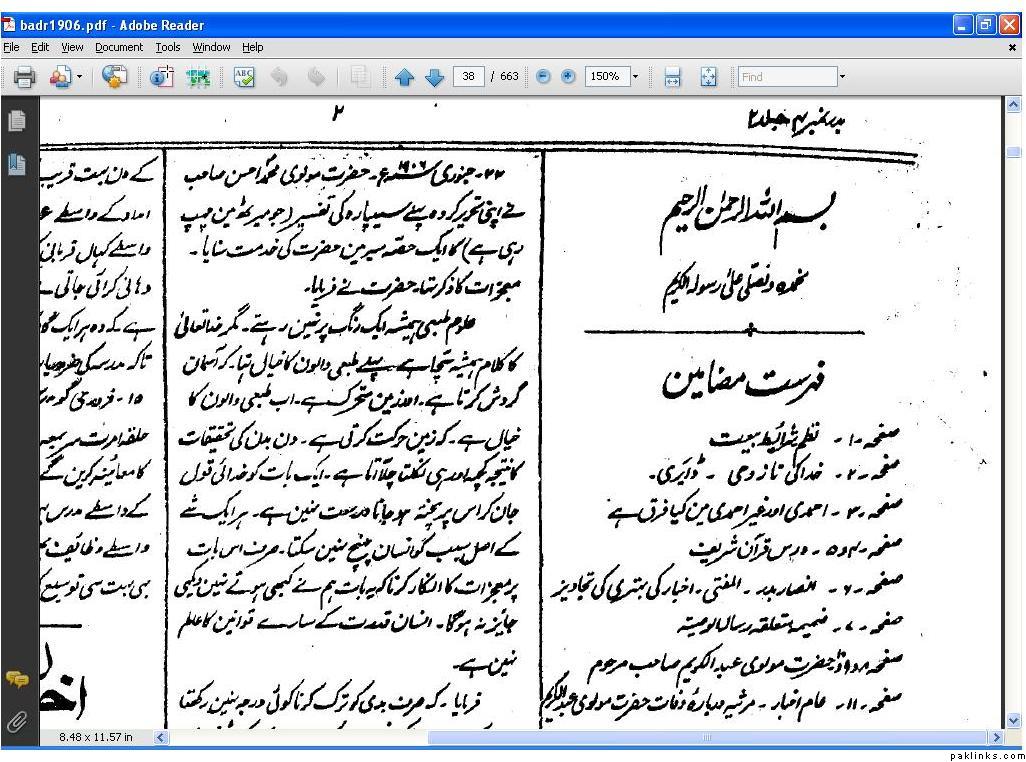 badr1906.pdf - Adobe Reader
File Edit View Document Tools Window Help
38 / 663 150% Find
بدر نمبر ۴ جلد ۲
۲
بسم اللہ الرحمٰن الرحیم
نحمدہ و نصلی علیٰ رسولہ الکریم
فہرست مضامین
صفحہ ۱۔ نظم شرائط بیعت
صفحہ ۲۔ خدا کی تازہ وحی ۔ ڈایری۔
صفحہ ۳۔ احمدی اور غیر احمدی مین کیا فرق ہے
صفحہ ۴ و ۵۔ درس قرآن شریف
صفحہ ۶۔ انصار بدر ۔ المفتی ۔ اخبار کی بہتری کی تجاویز
صفحہ ۷۔ ضمیمہ متعلقہ رسالہ الوصیتہ
صفحہ حضرت مولوی عبد الکریم صاحب مرحوم
صفحہ ۱۱۔ عام اخبار ۔ مرثیہ دربارۂ وفات حضرت مولوی عبد الکریم
۲۲۔ جنوری ۱۹۰۶ء۔ حضرت مولوی محمد احسن صاحب
نے اپنی تحریر کردہ پہلے سیپارہ کی تفسیر (جو میرٹھ مین چھپ
رہی ہے) کا ایک حصہ سیر مین حضرت کی خدمت سنایا۔
معجزات کا ذکر تھا۔ حضرت نے فرمایا۔
علوم طبعی ہمیشہ ایک رنگ پر نہین رہتے۔ مگر خدا تعالیٰ
کا کلام ہمیشہ سچا ہے۔ پہلے طبعی والون کا خیال تہا۔ کہ آسمان
گردش کرتا ہے۔ اور زمین متحرک ہے۔ اب طبعی والون کا
خیال ہے۔ کہ زمین حرکت کرتی ہے۔ دن بدن کی تحقیقات
کا نتیجہ کچھ اور ہی نکلتا چلا آتا ہے۔ ایک بات کو خدائی قول
جان کر اس پر پختہ ہو جانا درست نہین ہے۔ ہر ایک شے
کے اصل سبب کو انسان پہنچ نہین سکتا۔ صرف اس بات
پر معجزات کا انکار کرنا کہ یہ بات ہم نے کبھی ہوتے نہین دیکھی
جایز نہ ہوگا۔ انسان قدرت کے سارے قوانین کا عالم
نہین ہے۔
فرمایا۔ کہ صرف بدی کو ترک کرنا کوئی درجہ نہین رکھتا
کے دن بہت قریب
امداد کے واسطے
واسطے کہال قربانی
دہانی کرائی جاتی ہے
ہے کہ وہ ہر ایک
تاکہ مدرسہ کی
۱۵۔ فروری کو
حلقہ امرت سر
کا معائینہ کرین گے
کے واسطے مدرس
واسطے وظائف
بہی بہت سی توسیع
8.48 x 11.57 in
paklinks.com